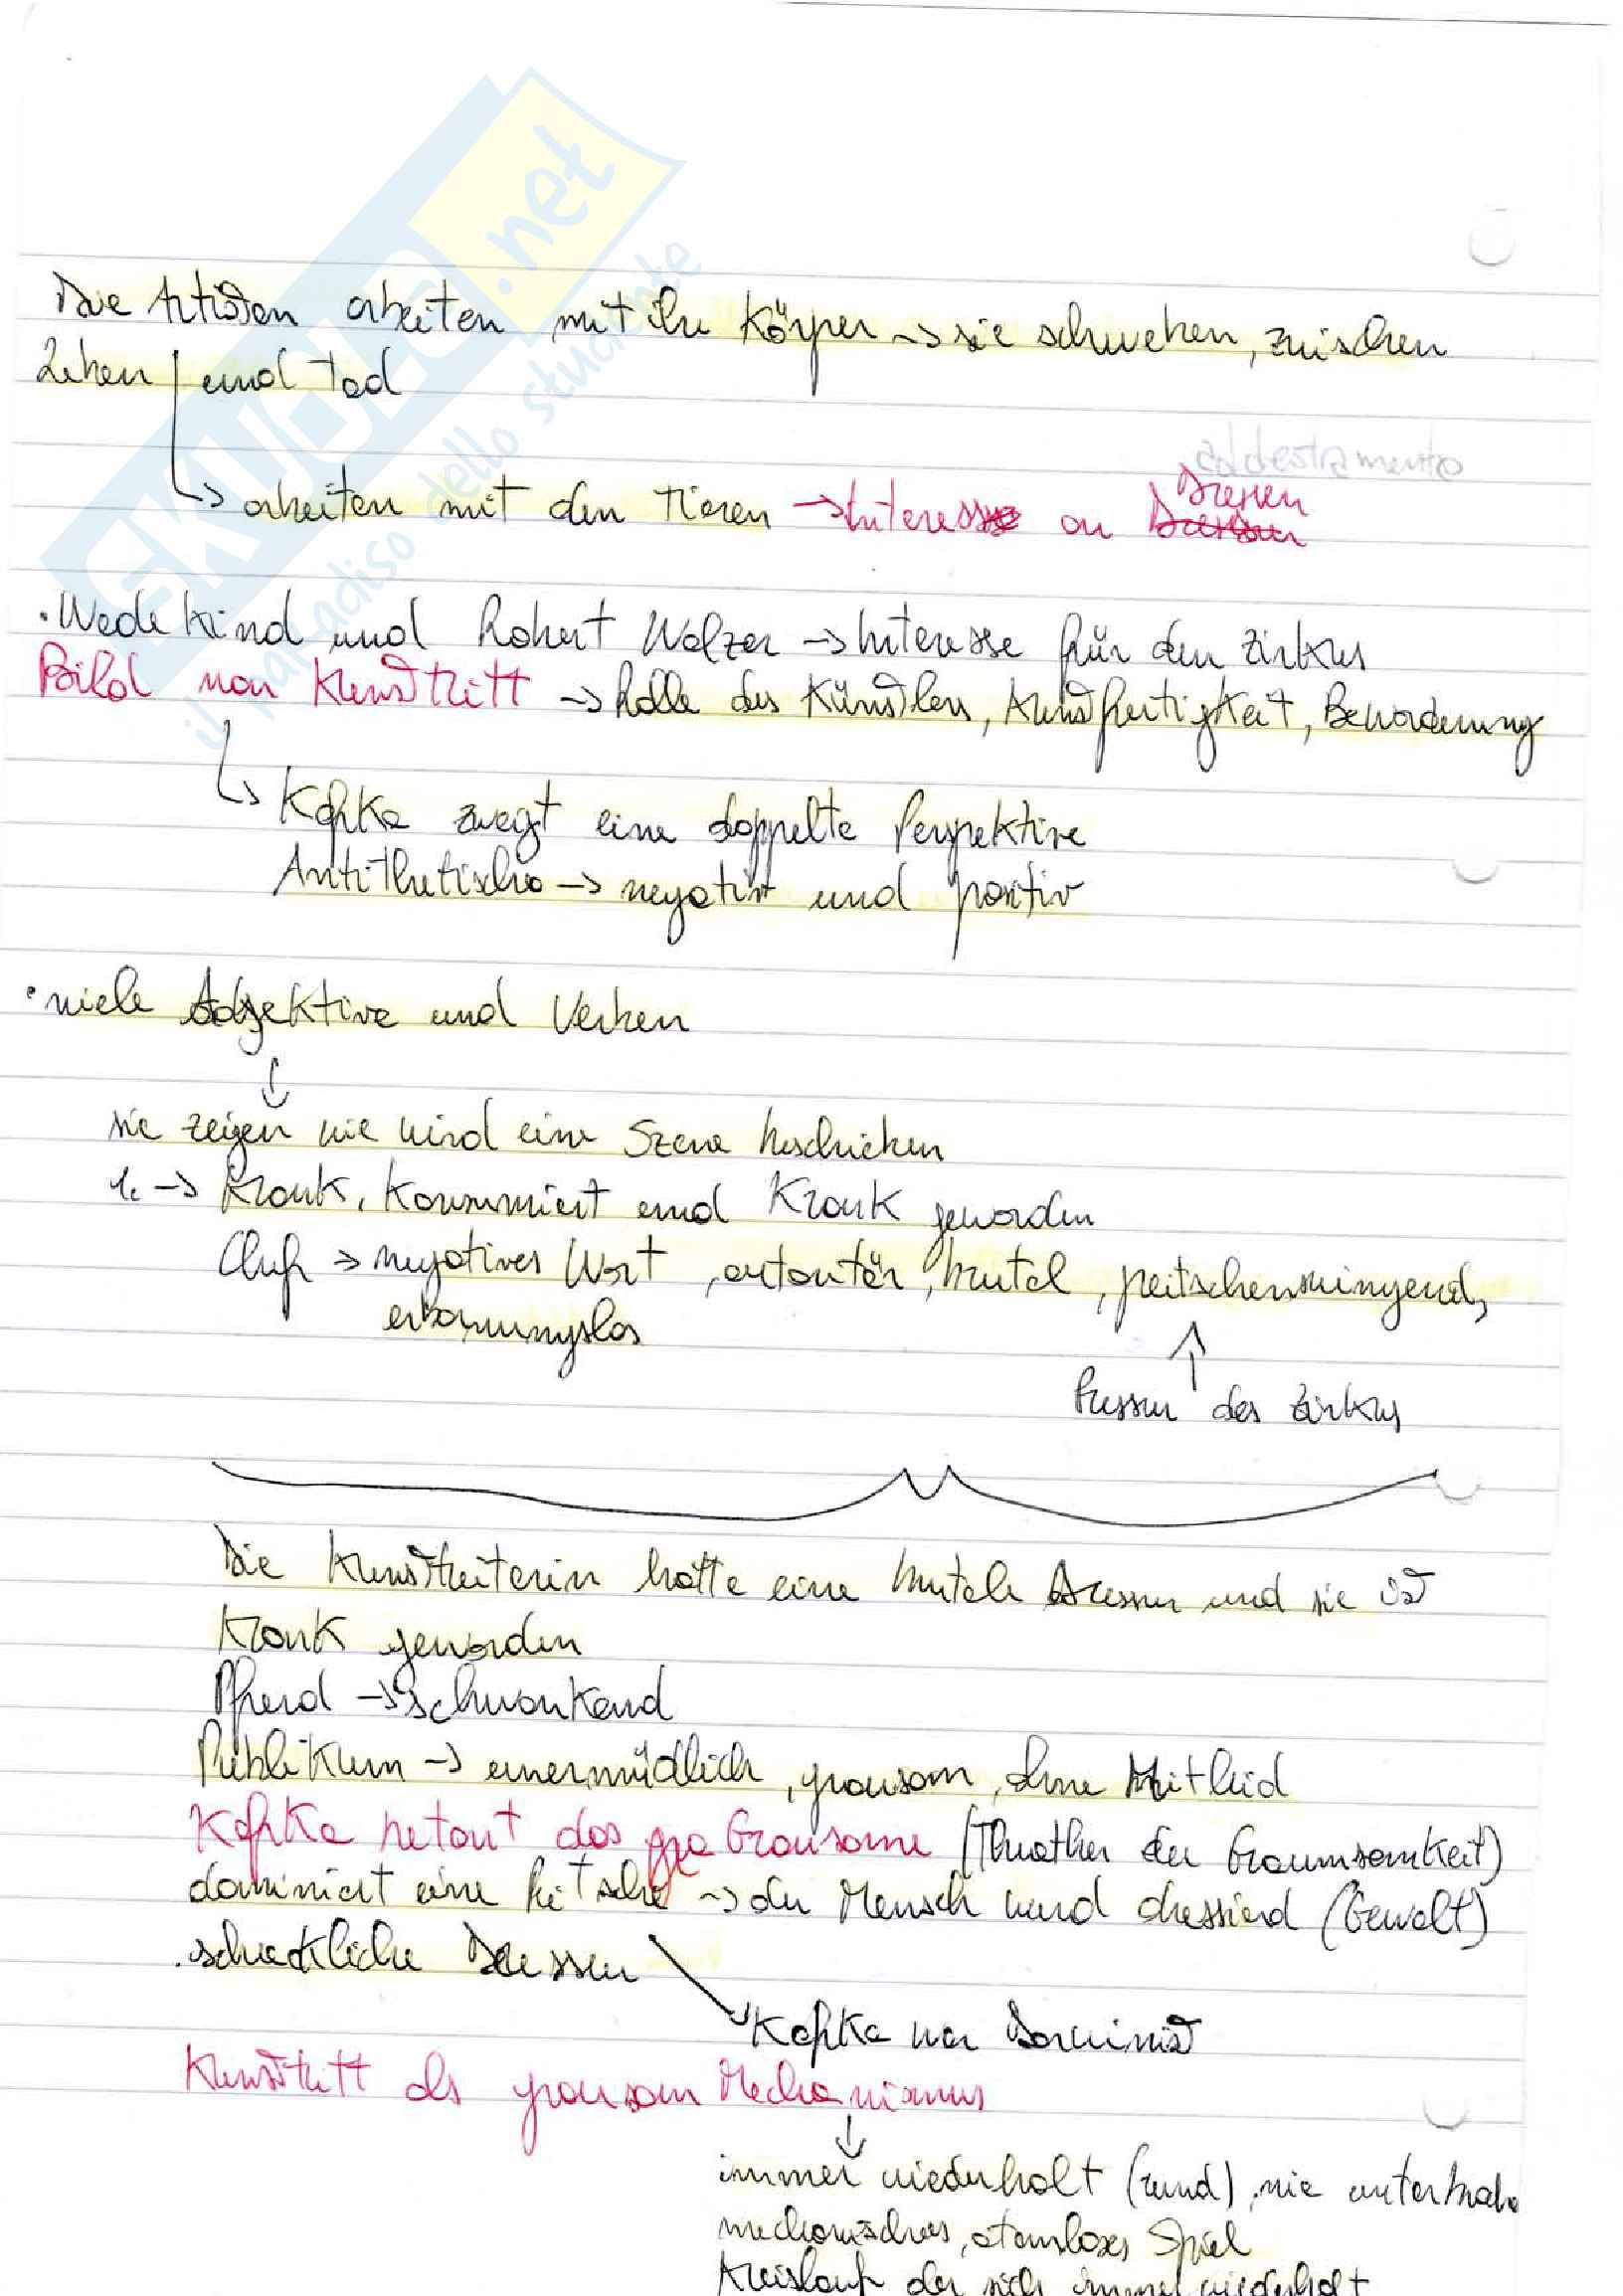 SKUOLA.net
il paradiso dello studente
Die Artisten arbeiten mit ihr Körper → sie schweben, zwischen
Leben und Tod
addestramento
Dressen
→ arbeiten mit den Tieren → Interesse an
• Wedekind und Robert Walzer → Interesse für den Zirkus
Bild von Kunstritt → Rolle des Künstlers, Kunstfertigkeit, Bewunderung
→ Kafka zeigt eine doppelte Perspektive
Antithetische → negativ und positiv
• viele Adjektive und Verben
↓
sie zeigen wie wird eine Szene beschrieben
1. → Krank, Konsumiert und Krank geworden
Chef → negatives Wort, autoritär, brutal, peitschenswingend,
erbarmungslos
↑
Dressur des Zirkus
Die Kunstreiterin hatte eine brutale Dressur und sie ist
Krank geworden
Pferd → schwankend
Publikum → unermüdlich, grausam, ohne Mitleid
Kafka betont das Grausame (Theather der Graumsamkeit)
dominiert eine Peitsche → der Mensch wird dressierd (Gewalt)
. schreckliche Dressur
Kafka war Darwinist
Kunstritt als grausam Mechanismus
↓
immer wiederholt (rund), nie unterbroche
mechanisches, atemloses Spiel
Kreislauf der sich immer wiederholt